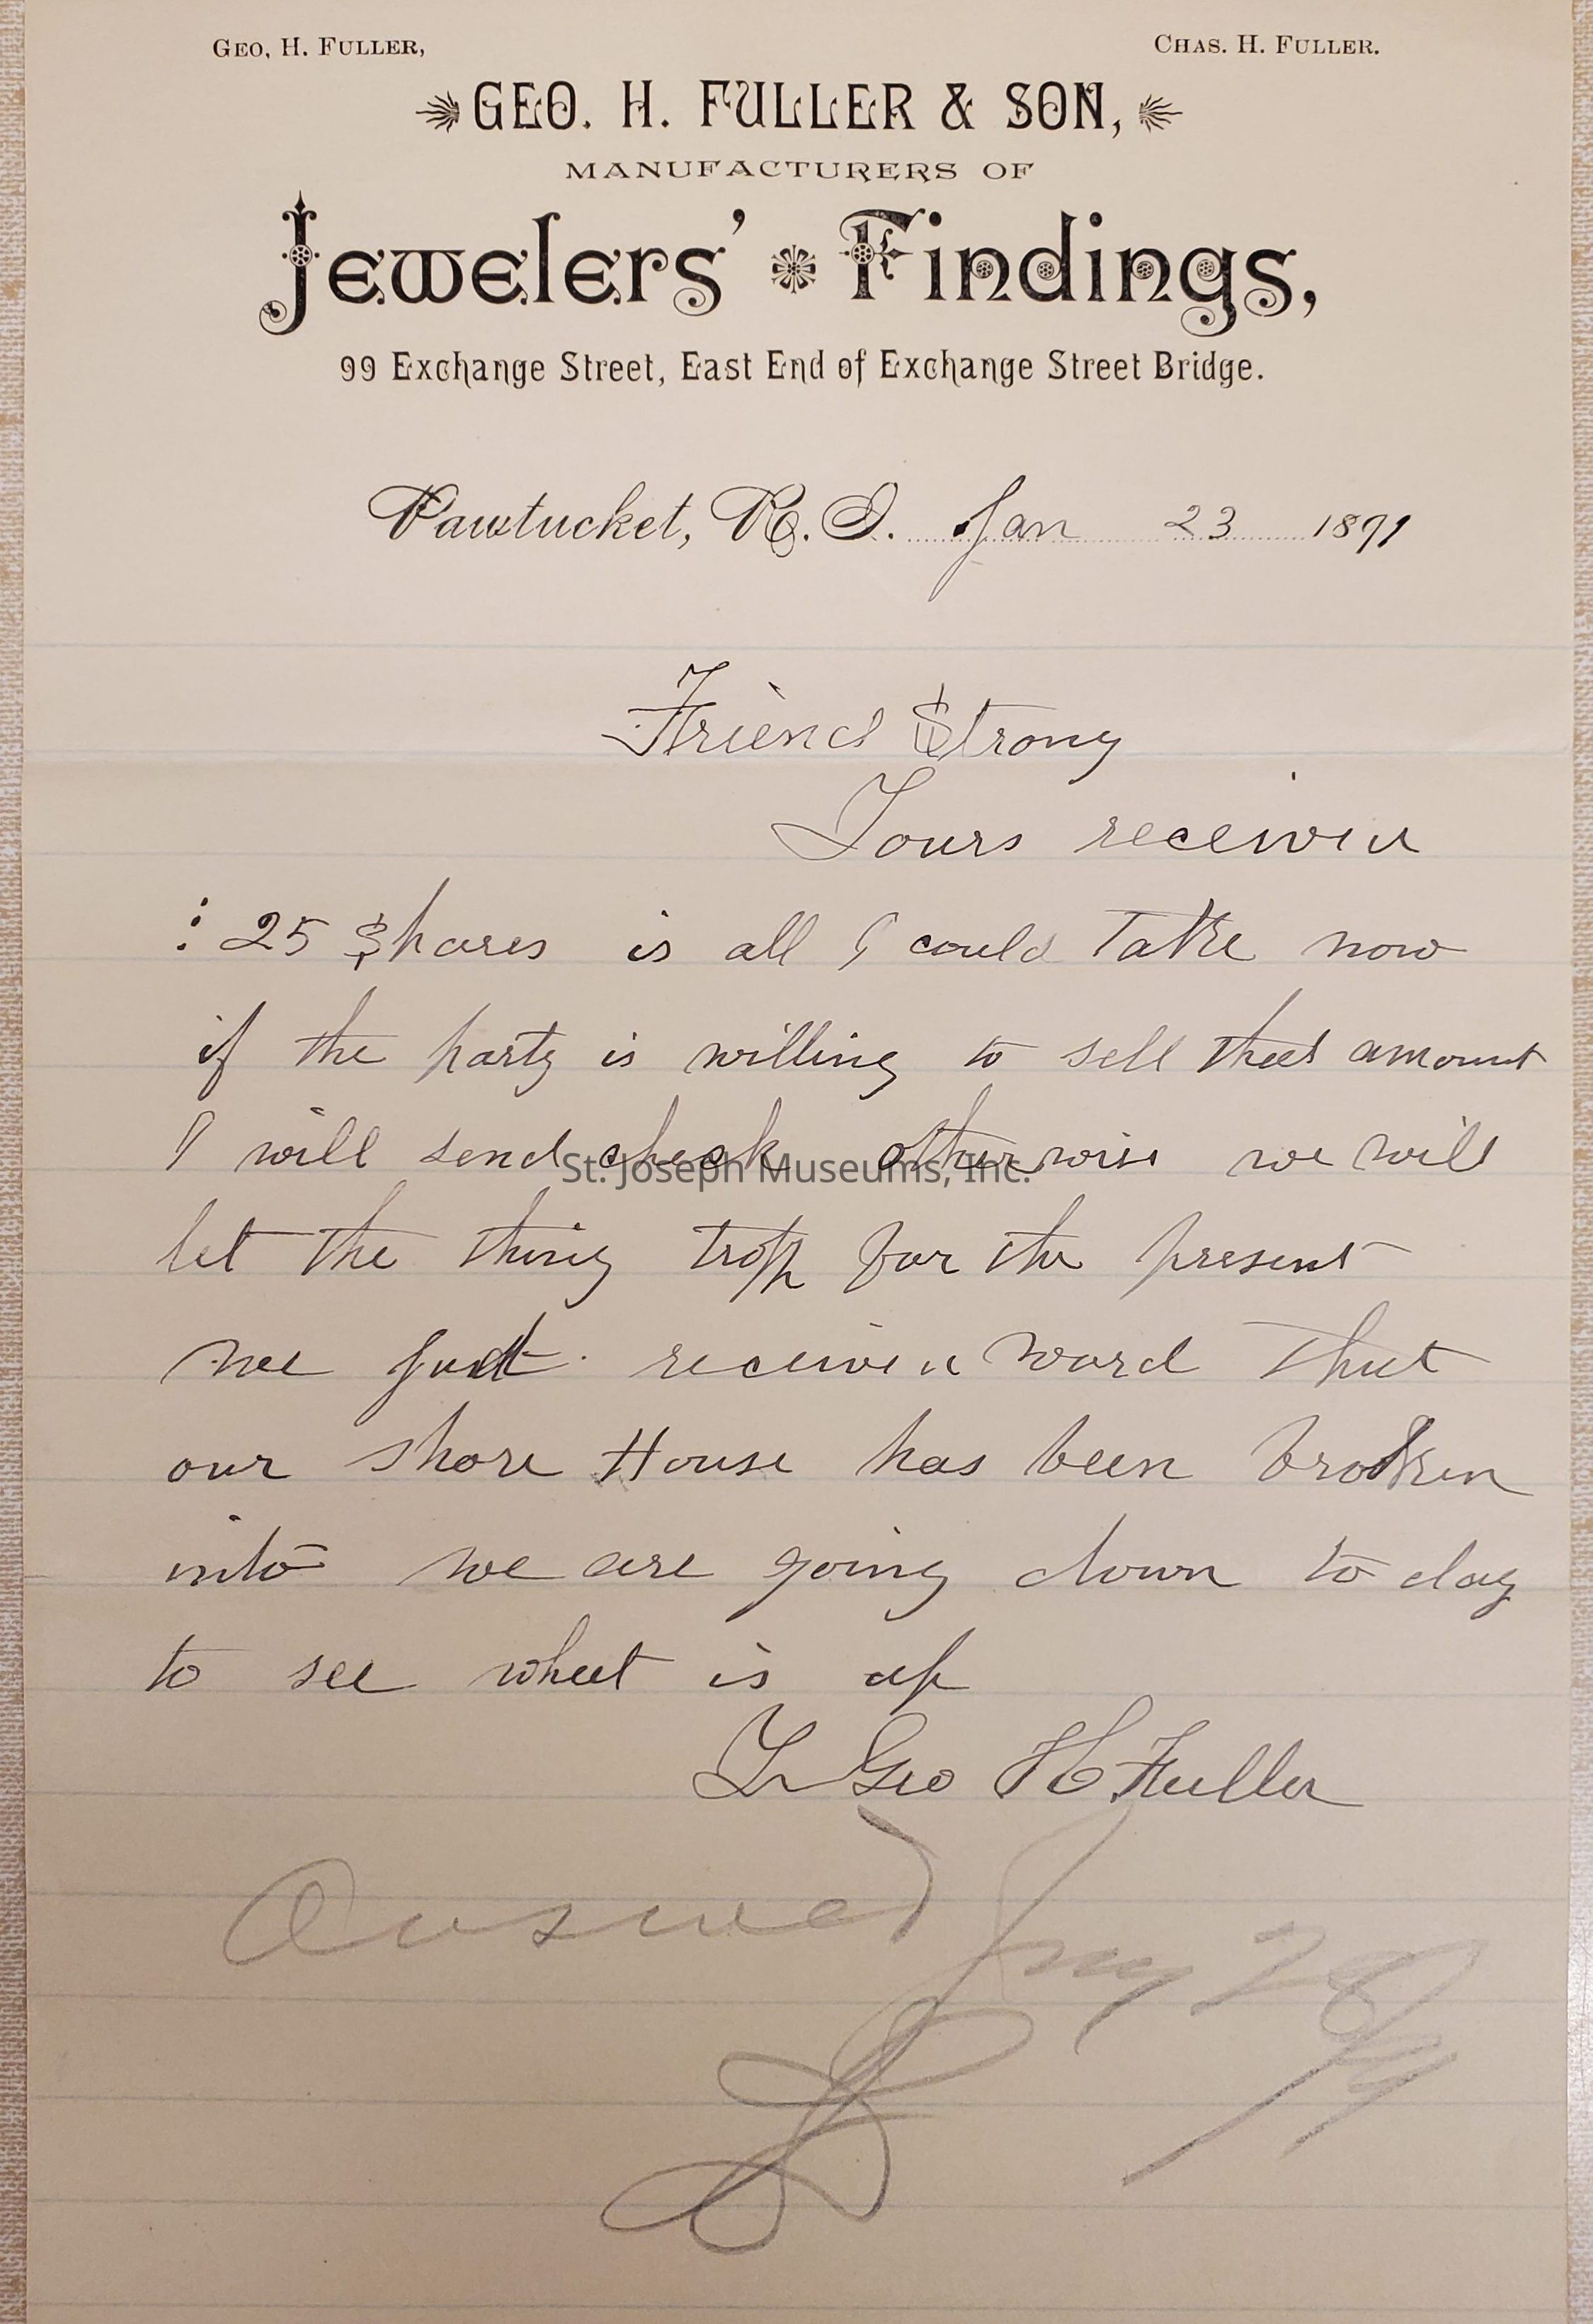 GEO. H. FULLER, CHAS. H. FULLER.
GEO. H. FULLER & SON,
MANUFACTURERS OF
Jewelers' Findings,
99 Exchange Street, East End of Exchange Street Bridge.
Pawtucket, R. I. Jan 23 1891
Friend Strong
Yours received
: 25 Shares is all I could Take now
if the party is willing to sell that amount
I will send check otherwise we will
St. Joseph Museums, Inc.
let the thing trop for the present
we just received word that
our shore House has been broken
into we are going down to day
to see what is up
Yr Geo H Fuller
Answed Jny 28/91